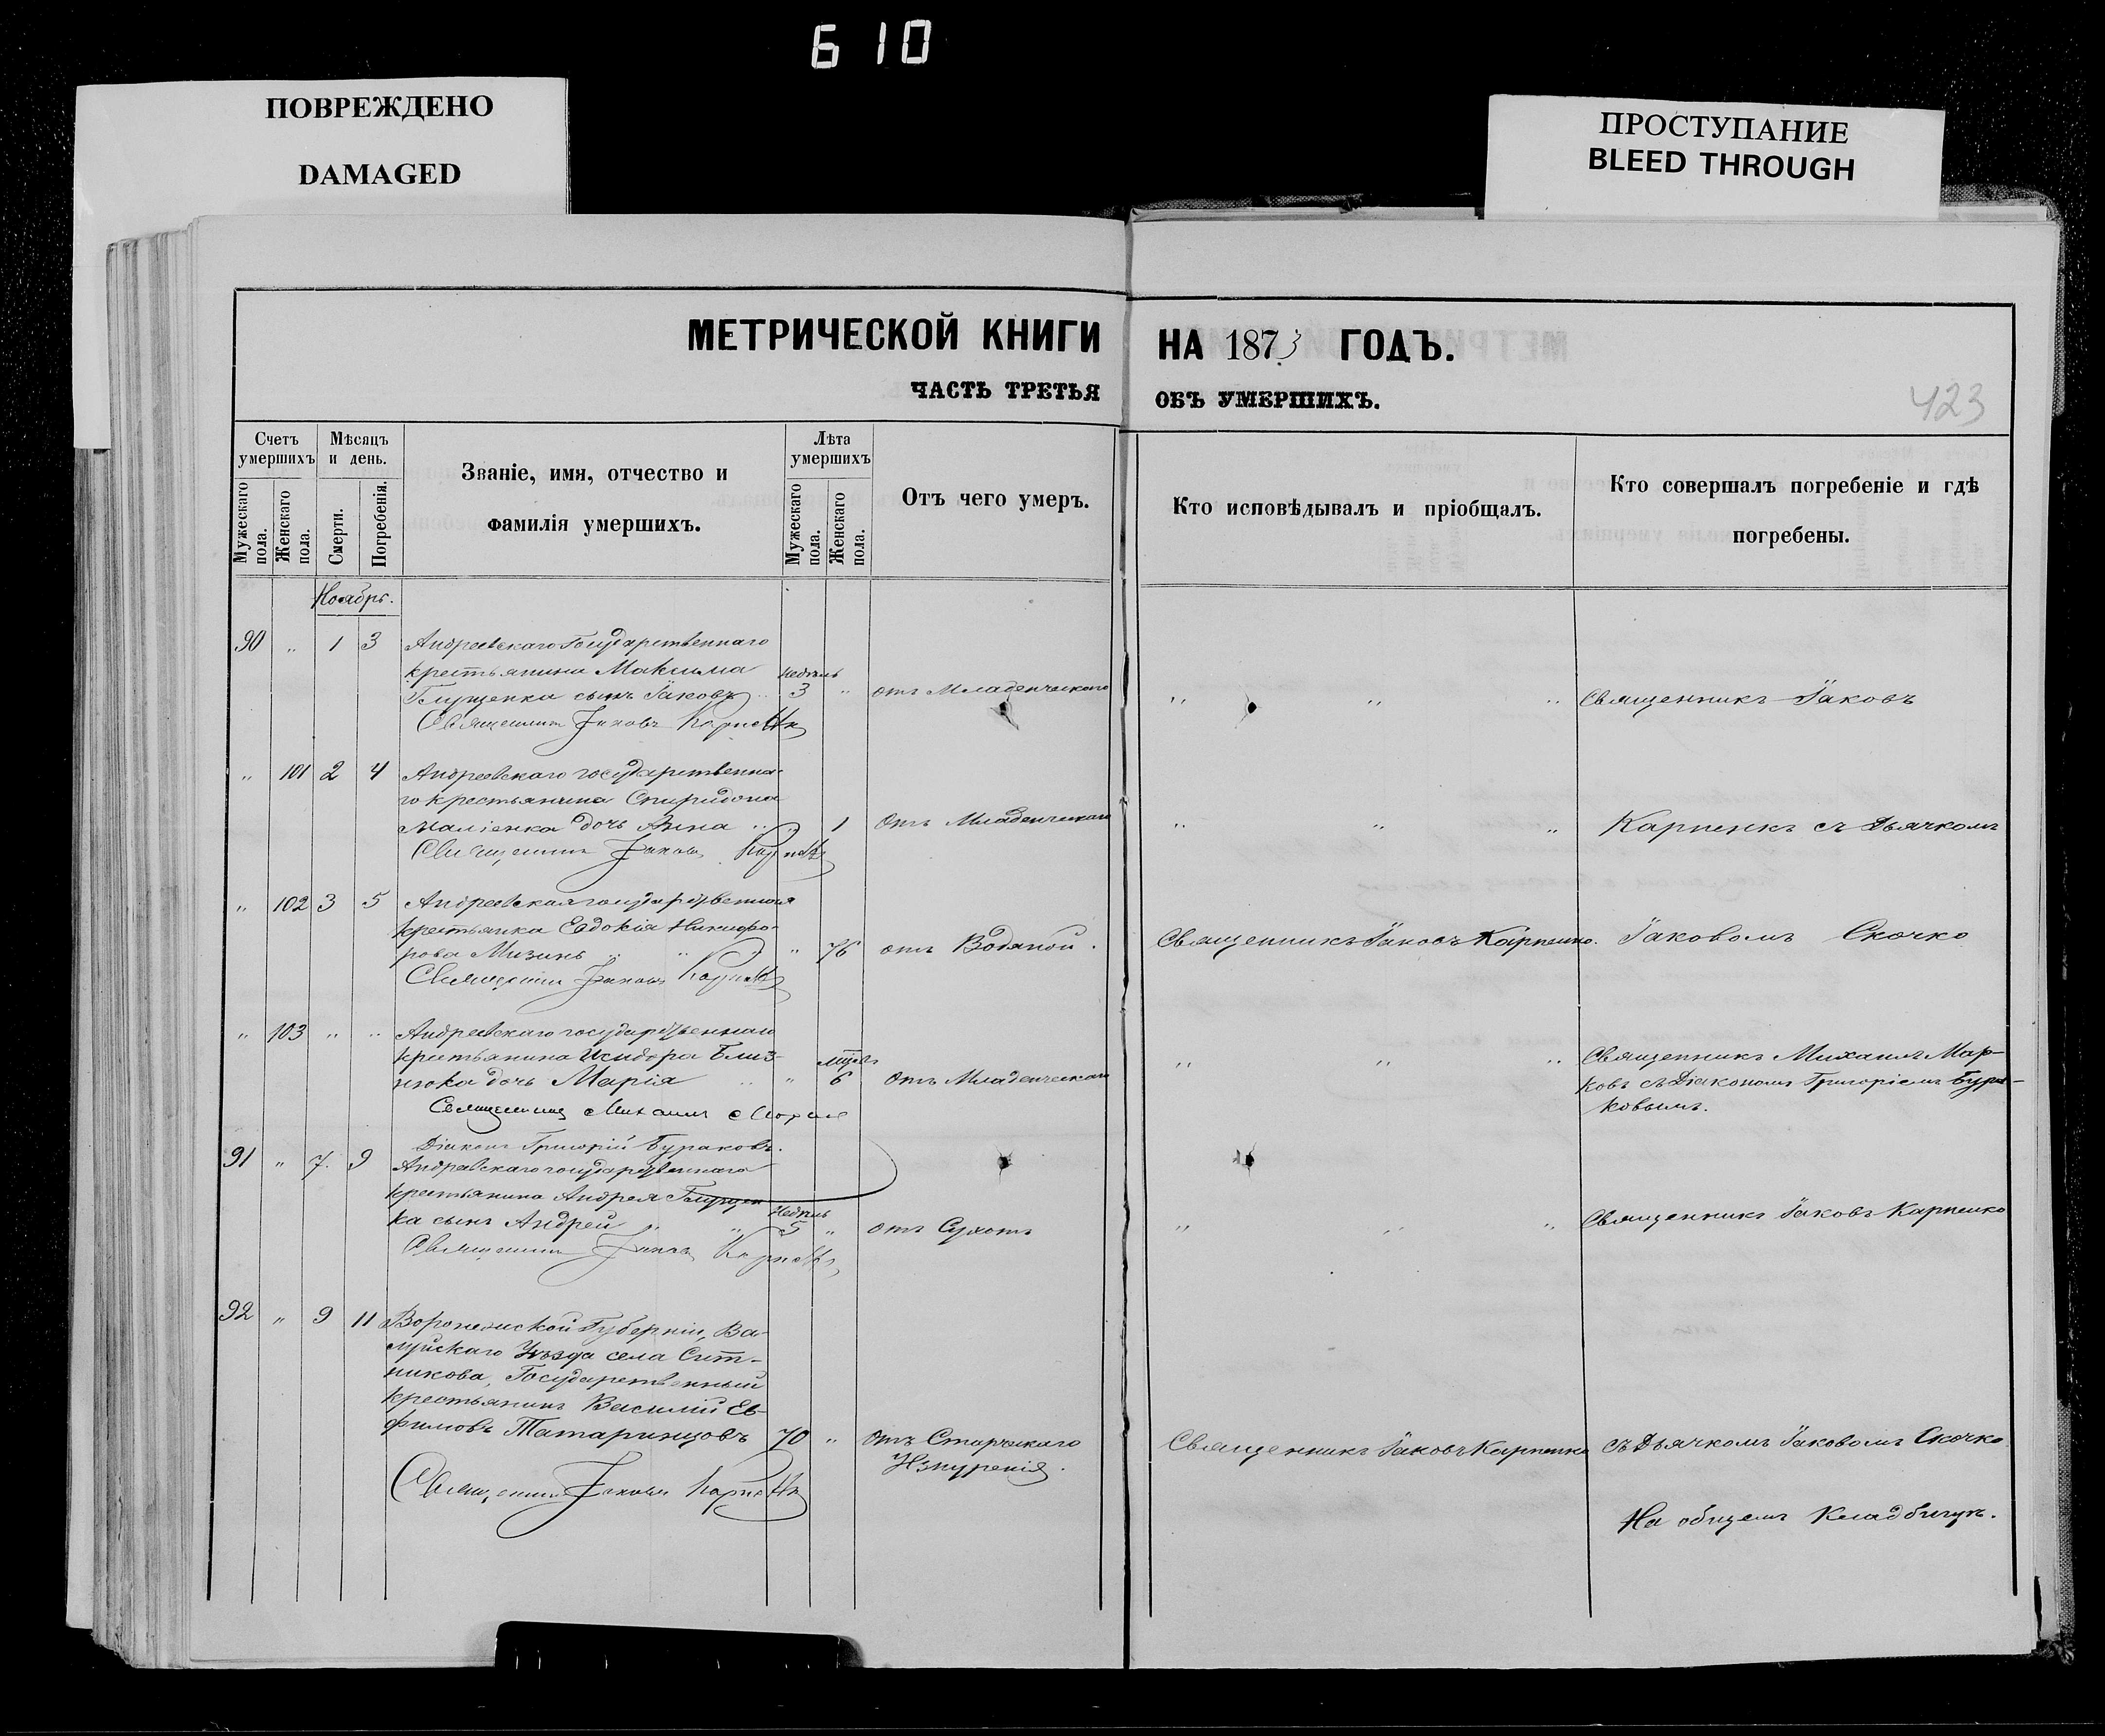 610
ПОВРЕЖДЕНО
DAMAGED
ПРОСТУПАНИЕ
BLEED THROUGH
МЕТРИЧЕСКОЙ КНИГИ НА 1873 ГОДЪ.
ЧАСТЬ ТРЕТЬЯ ОБЪ УМЕРШИХЪ.
423
Счетъ умершихъ
Мужескаго пола.
Женскаго пола.
Мѣсяцъ и день.
Смерти.
Погребенія.
Званіе, имя, отчество и
фамилія умершихъ.
Лѣта умершихъ
Мужескаго пола.
Женскаго пола.
Отъ чего умеръ.
Кто исповѣдывалъ и пріобщалъ.
Кто совершалъ погребеніе и гдѣ
погребены.
Ноябрь.
90 „ 1 3 Андреевскаго Государственнаго
крестьянина Максима недѣль
Глущенка сынъ Іаковъ 3 „ отъ Младенческаго „ „ „ Священникъ Іаковъ
Священникъ Іаковъ Карпенко
„ 101 2 4 Андреевскаго государственна-
го крестьянина Спиридона
Маліенка дочь Анна „ „ 1 Отъ Младенческаго „ „ „ Карпенко съ Дьячкомъ
Священникъ Іаковъ Карпенко
„ 102 3 5 Андреевская государственная
крестьянка Евдокія Никифо-
рова Мизинъ „ „ „ 76 отъ Водяной. Священникъ Іаковъ Карпенко. Іаковомъ Скочко
Священникъ Іаковъ Карпенко
„ 103 „ „ Андреевскаго государственнаго
крестьянина Исидора Близ- мцевъ
нюка дочь Марія „ „ 6 Отъ Младенческаго „ „ „ Священникъ Михаилъ Мар-
ковъ съ Діакономъ Григоріемъ Бура-
ковымъ.
Священникъ Михаилъ Марковъ
Діаконъ Григорій Бураковъ.
91 „ 7. 9 Андреевскаго государственнаго
крестьянина Андрея Глущен
ка сынъ Андрей „ „ недѣль 5 „ отъ Сухотъ „ „ „ Священникъ Іаковъ Карпенко
Священникъ Іаковъ Карпенко
92 „ 9 11 Воронежской Губерніи, Ва-
луйскаго Уѣзда села Сит-
никова, Государственный
крестьянинъ Василій Ев-
фимовъ Татаринцовъ 70 „ Отъ Старческаго Священникъ Іаковъ Карпенко съ Дьячкомъ Іаковомъ Скочко
Изнуренія.
Священникъ Іаковъ Карпенко
На общемъ Кладбищѣ.